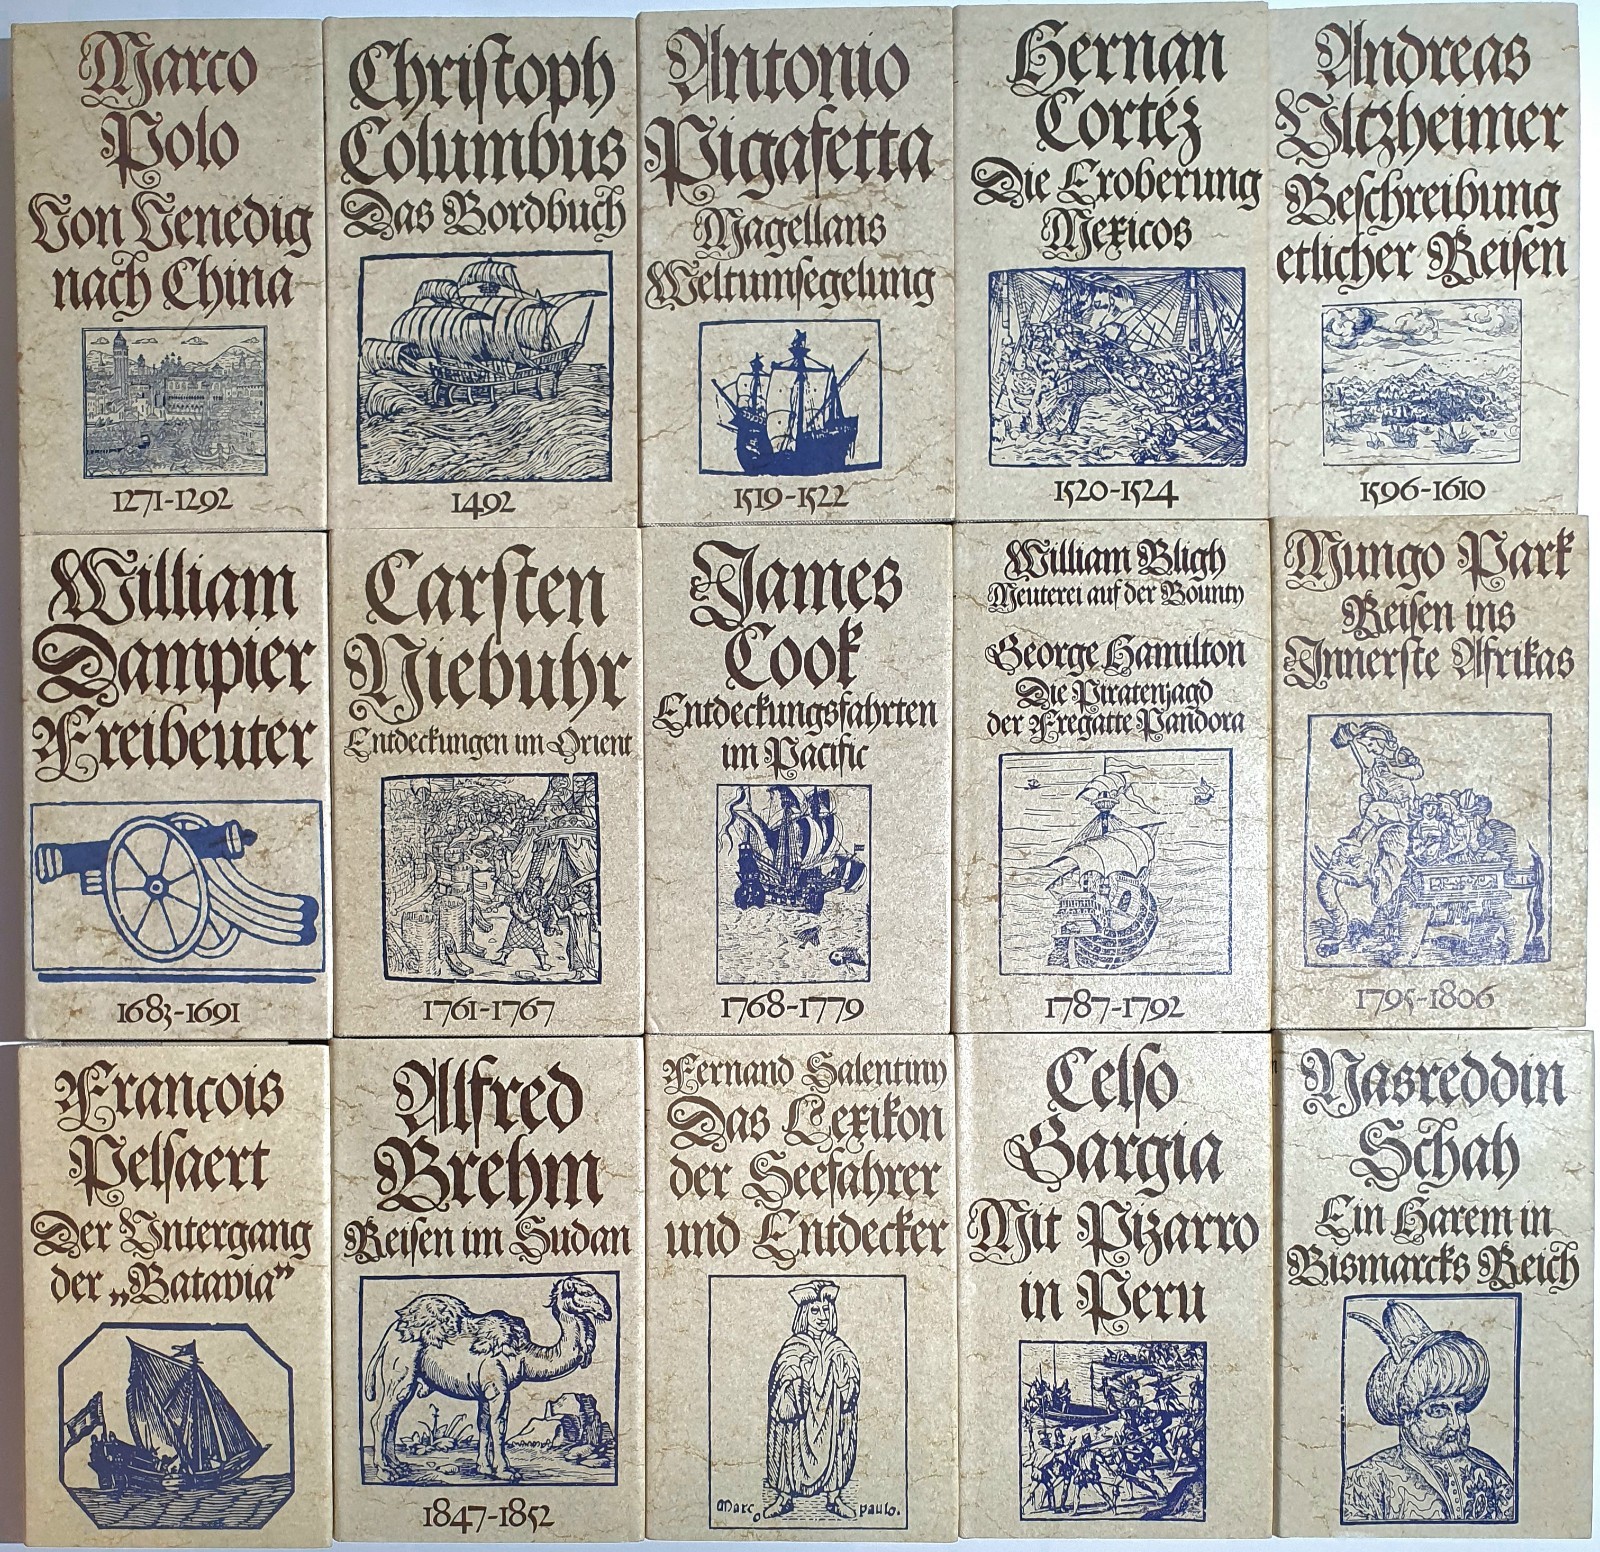 Marco
Polo
Von Venedig
nach China
1271-1292
Christoph
Columbus
Das Bordbuch
1492
Antonio
Pigafetta
Magellans
Weltumsegelung
1519-1522
Hernan
Cortéz
Die Eroberung
Mexicos
1520-1524
Andreas
Ultzheimer
Beschreibung
etlicher Reisen
1596-1610
William
Dampier
Freibeuter
1683-1691
Carsten
Niebuhr
Entdeckungen im Orient
1761-1767
James
Cook
Entdeckungsfahrten
im Pacific
1768-1779
William Bligh
Meuterei auf der Bounty
George Hamilton
Die Piratenjagd
der Fregatte Pandora
1787-1792
Mungo Park
Reisen ins
Innerste Afrikas
1795-1806
François
Pelsaert
Der Untergang
der „Batavia”
Alfred
Brehm
Reisen im Sudan
1847-1852
Fernand Salentiny
Das Lexikon
der Seefahrer
und Entdecker
Marco paulo.
Celso
Gargia
Mit Pizarro
in Peru
Nasreddin
Schah
Ein Harem in
Bismarcks Reich